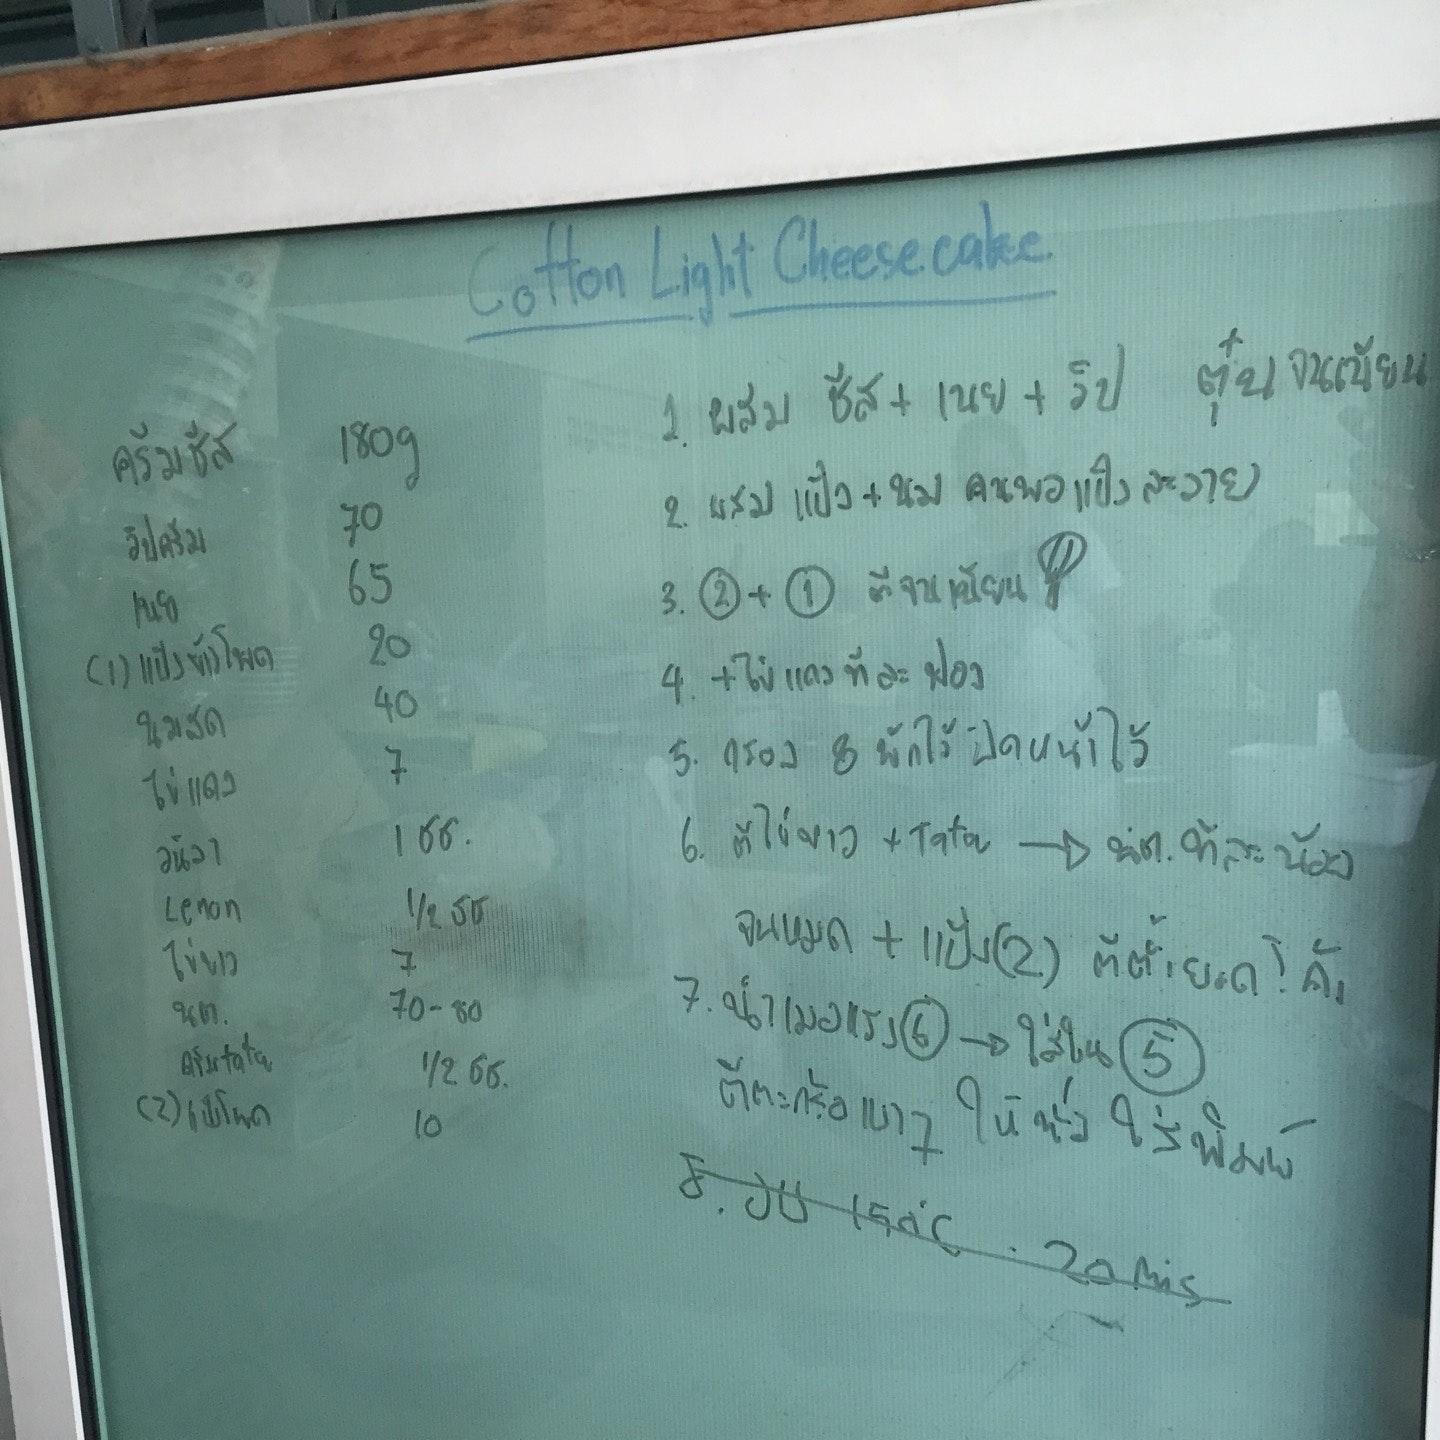 Cotton Light Cheesecake.
ครีมชีส 180g
วิปครีม 70
เนย 65
(1) แป้งข้าวโพด 20
นมสด 40
ไข่แดง 7
วนิลา 1 ชช.
Lemon 1/2 ชช
ไข่ขาว 7
นต. 70-80
ครีมtata 1/2 ชช.
(2) แป้งโพด 10
1. ผสม ชีส + เนย + วิป ตุ๋น จนเนียน
2. ผสม แป้ง + นม คนพอแป้งละลาย
3. ② + ① ตีจนเนียน
4. +ไข่แดงทีละ ฟอง
5. กรอง & พักไว้ ปิดหน้าไว้
6. ตีไข่ขาว + Tata → นต. ทีละน้อย
จนหมด + แป้ง(2) ตีตั้งยอด!
7. นำเมอแรง ⑥ → ใส่ใน ⑤
ตีตะกร้อเบาๆ ให้ ใส่พิมพ์
8. อบ 150°C . 20 min